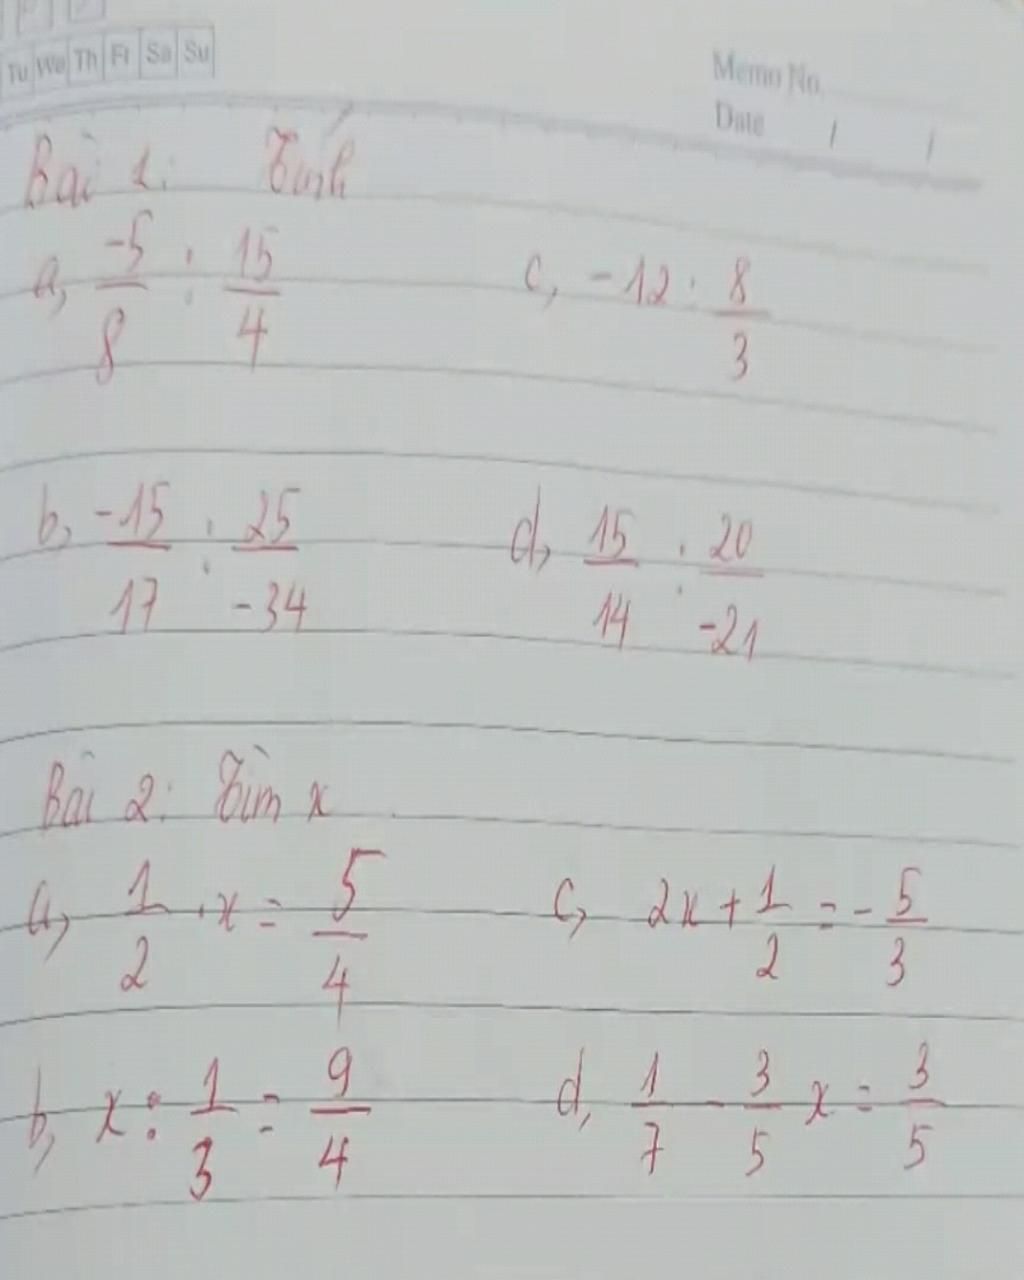 Tu We Th Fr Sa Su
Memo No.
Date / /
Bài 1: Tính
a, -5/8 : 15/4    c, -12 : 8/3
b, -15/17 : 25/-34    d, 15/14 : 20/-21
Bài 2: Tìm x
a, 1/2 . x = 5/4    c, 2x + 1/2 = - 5/3
b, x : 1/3 = 9/4    d, 1/7 - 3/5 x = 3/5